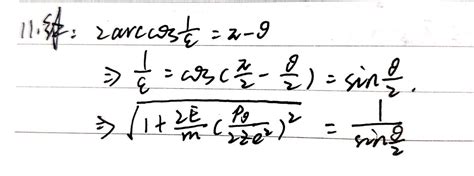 11.解: 2arccos\frac{1}{ε} = π-θ
⇒ \frac{1}{ε} = cos(\frac{π}{2} - \frac{θ}{2}) = sin\frac{θ}{2}.
⇒ \sqrt{1+\frac{2E}{m}(\frac{Pθ}{2ze^2})^2} = \frac{1}{sin\frac{θ}{2}}